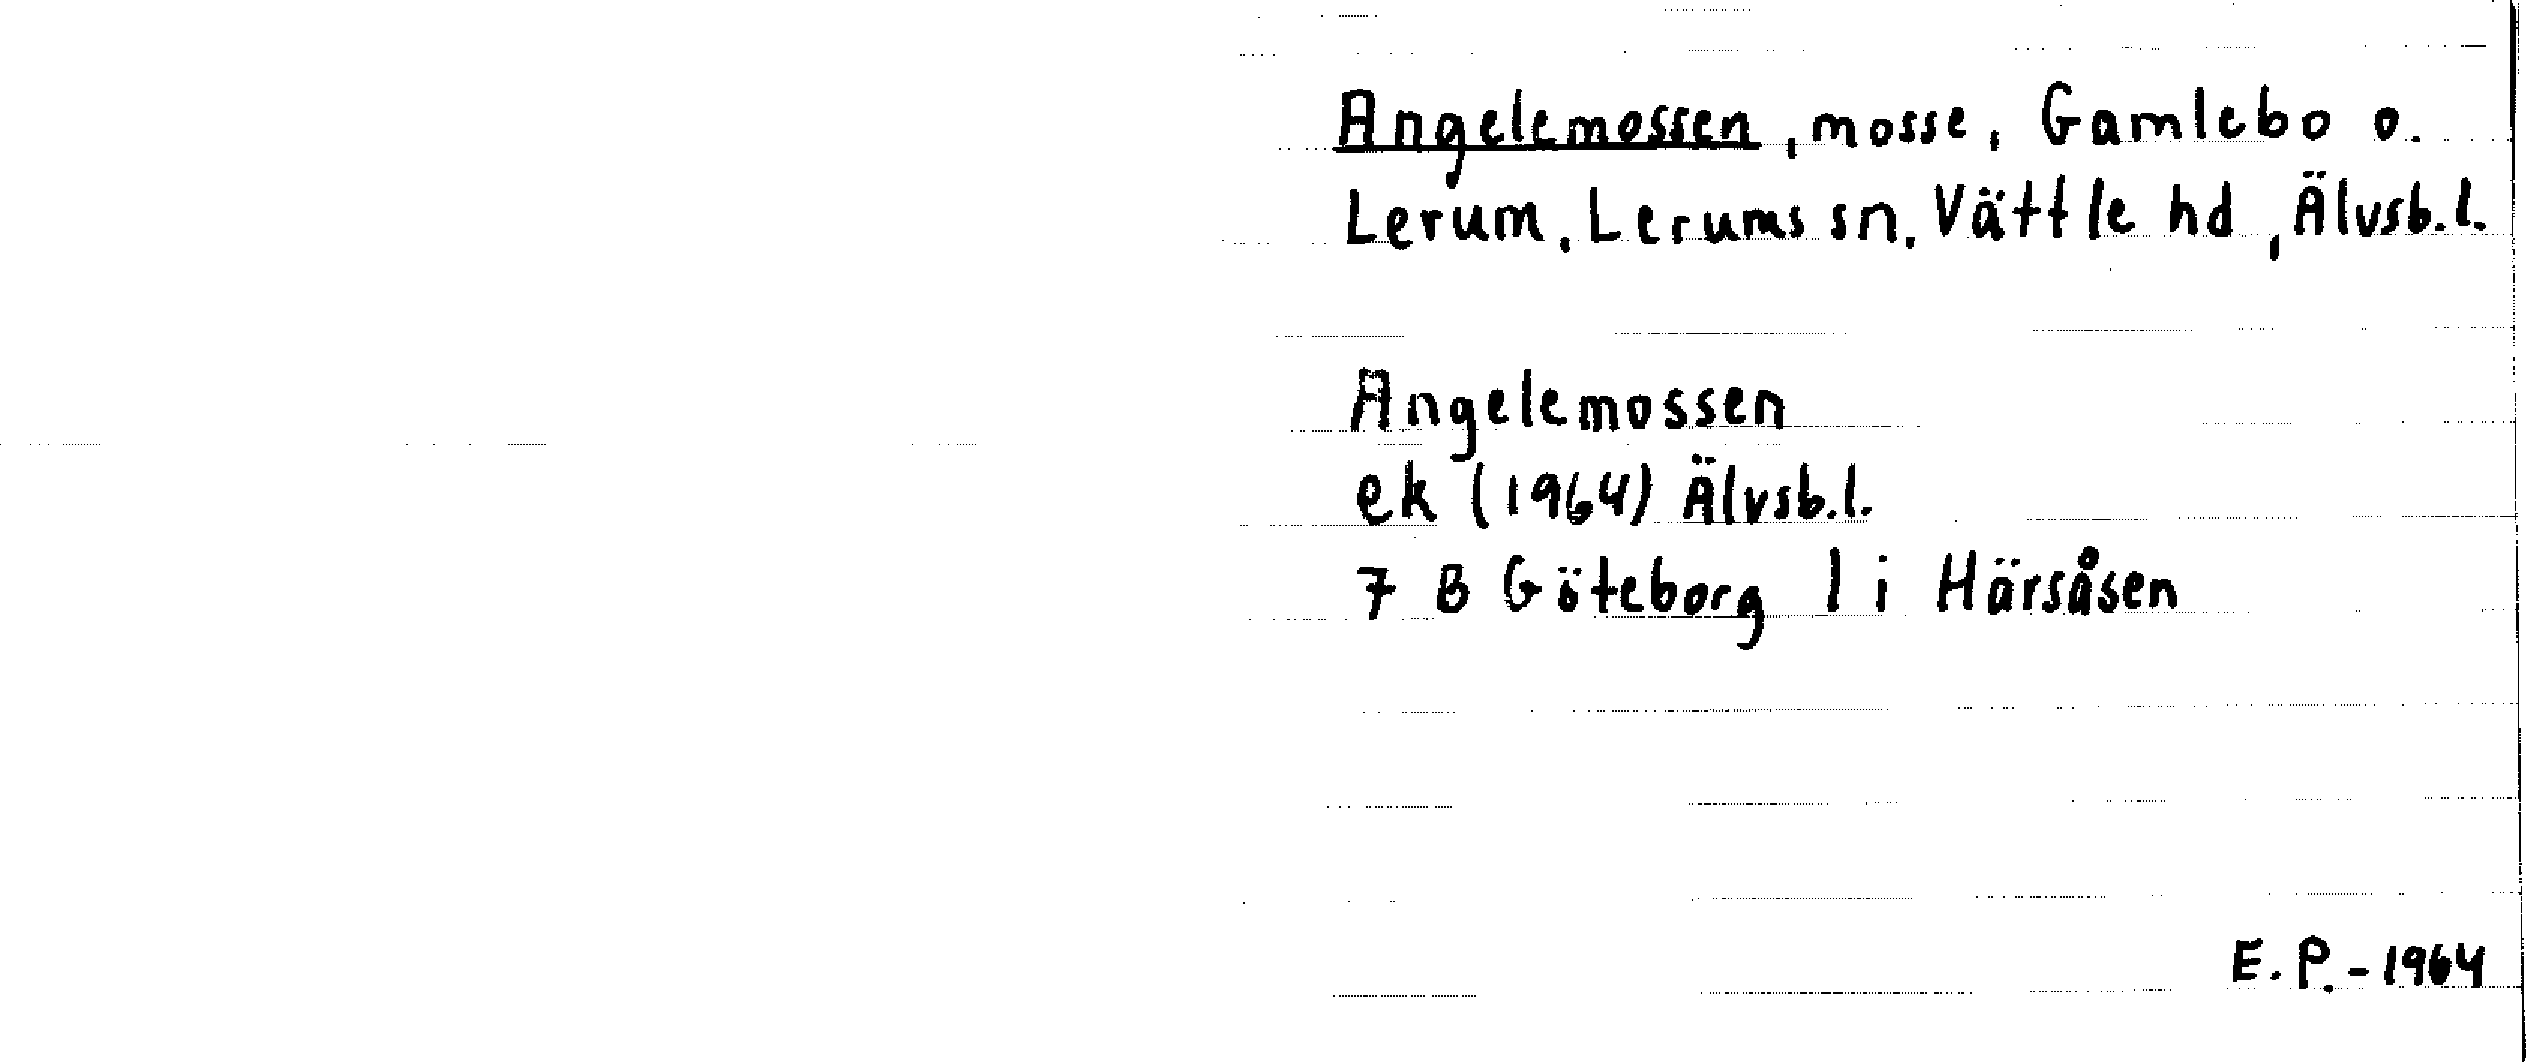 Angelemossen, mosse, Gamlebo o.
Lerum, Lerums sn, Vättle hd, Älvsb.l.
Angelemossen
ek (1964) Älvsb.l.
7 B Göteborg 1 i Härsåsen
E.P.-1964